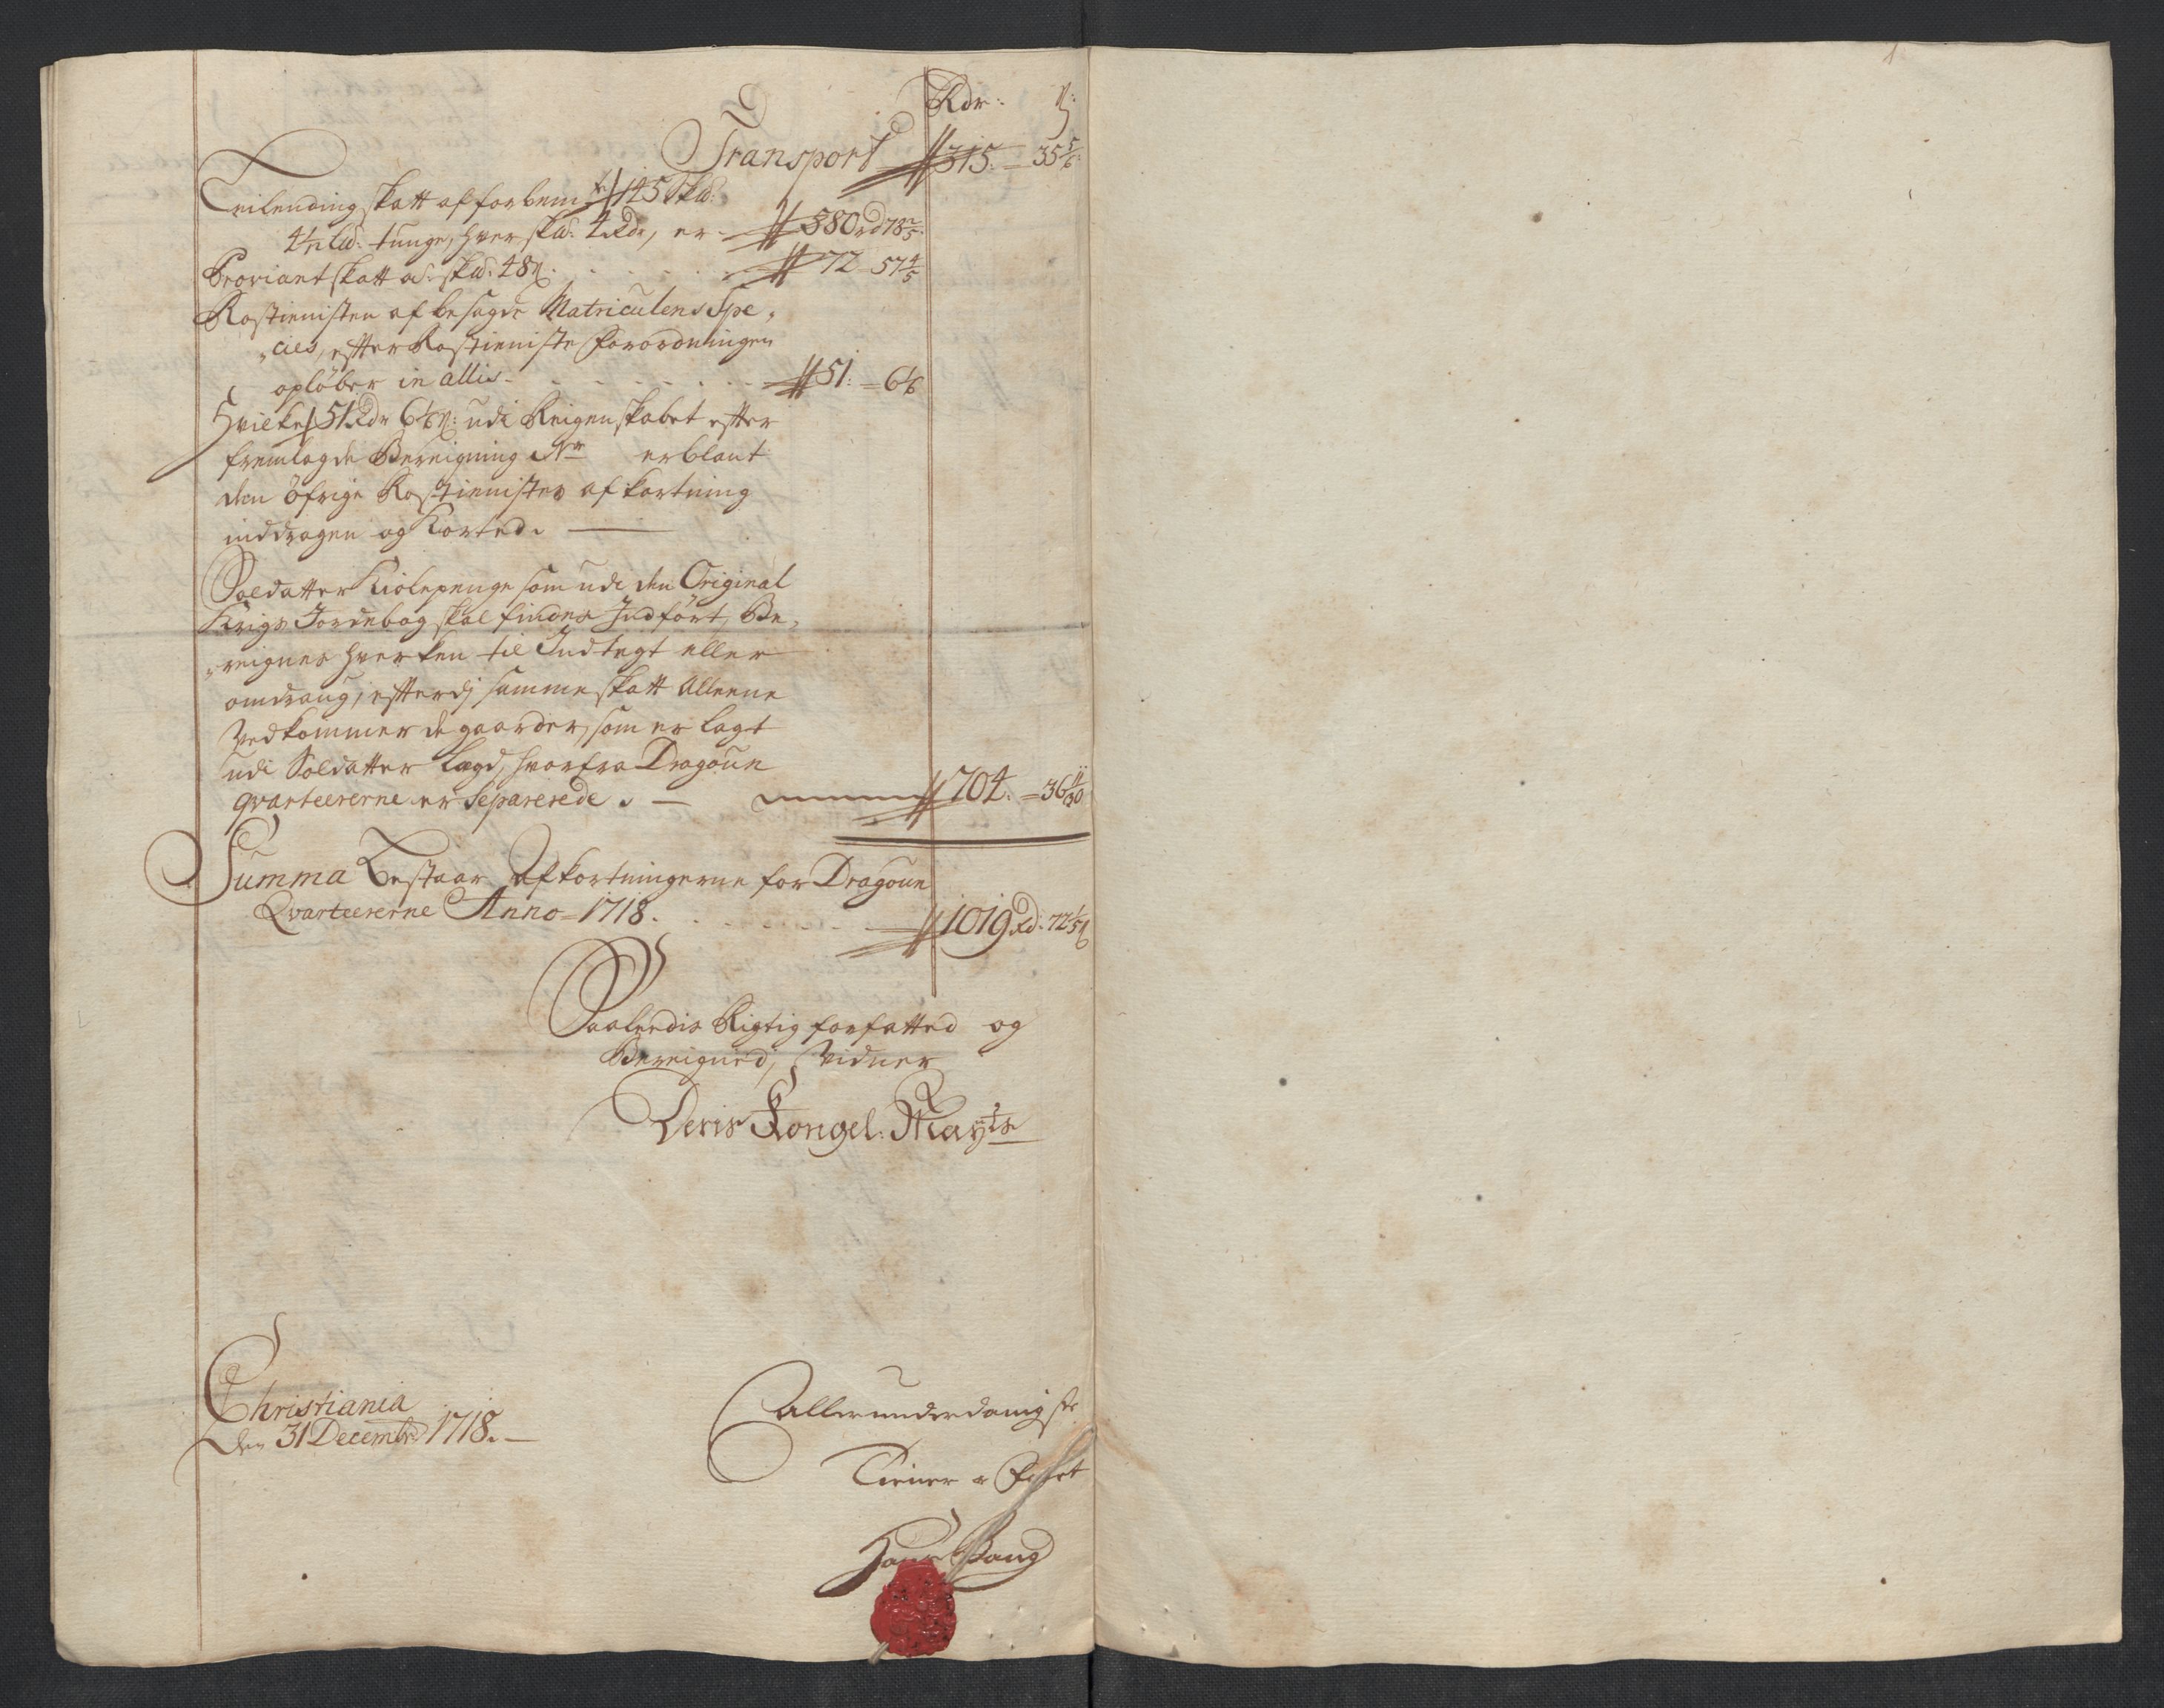 Rdr: ß:
Transport 315. – 35 5/6
Leilending skatt af forbemte 145 Skd:
4 1/2 Lid: tunge, hver skd: 4 Rdr, er 580 rd 78 2/5
Proviant skatt a skd: 48 ß. 72 – 57 4/5
Rostienisten af besagde Matriculens Spe„
„cies, effter Rostieniste Forordningen
opløber in allis 51: – 6 1/6
Hvilke 51 Rdr 6 1/6 ß: udi Reigenskabet effter
fremlagde Bereigning Nr er blant
den öfrige Rostienistes afkortning
inddragen og Korted. —
Soldatter Kiolepenge som udi den Original
Krigs Jordebog skal findes Indført, Be„
„reignes hverken til Indtegt eller
omdraug, effterdj samme skatt Alleene
Vedkommer de gaarder, som er lagt
udi Soldatter Lægd, hvorfra Dragoun
qvarteererne er Separerede. — 704. – 36 11/30
Summa Bestaar Afkortningerne for Dragoun
Qvarteererne Anno 1718. 1019 Rd: 72 1/5 ß
Saaledis Rigtig forfatted og
Bereigned, Vidner
Deris Kongel: Mayts
Christiania
den 31 Decembr 1718. —
Allerunderdanigste
Tiener
Hans Bang